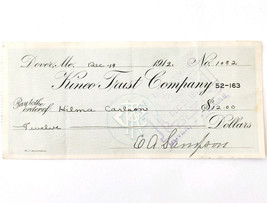 Dover, Me. Dec 18 1912. No. 1082
Kineo Trust Company 52-163
Pay to the order of Hilma Carlson $12.00
Twelve Dollars
E A Sampson